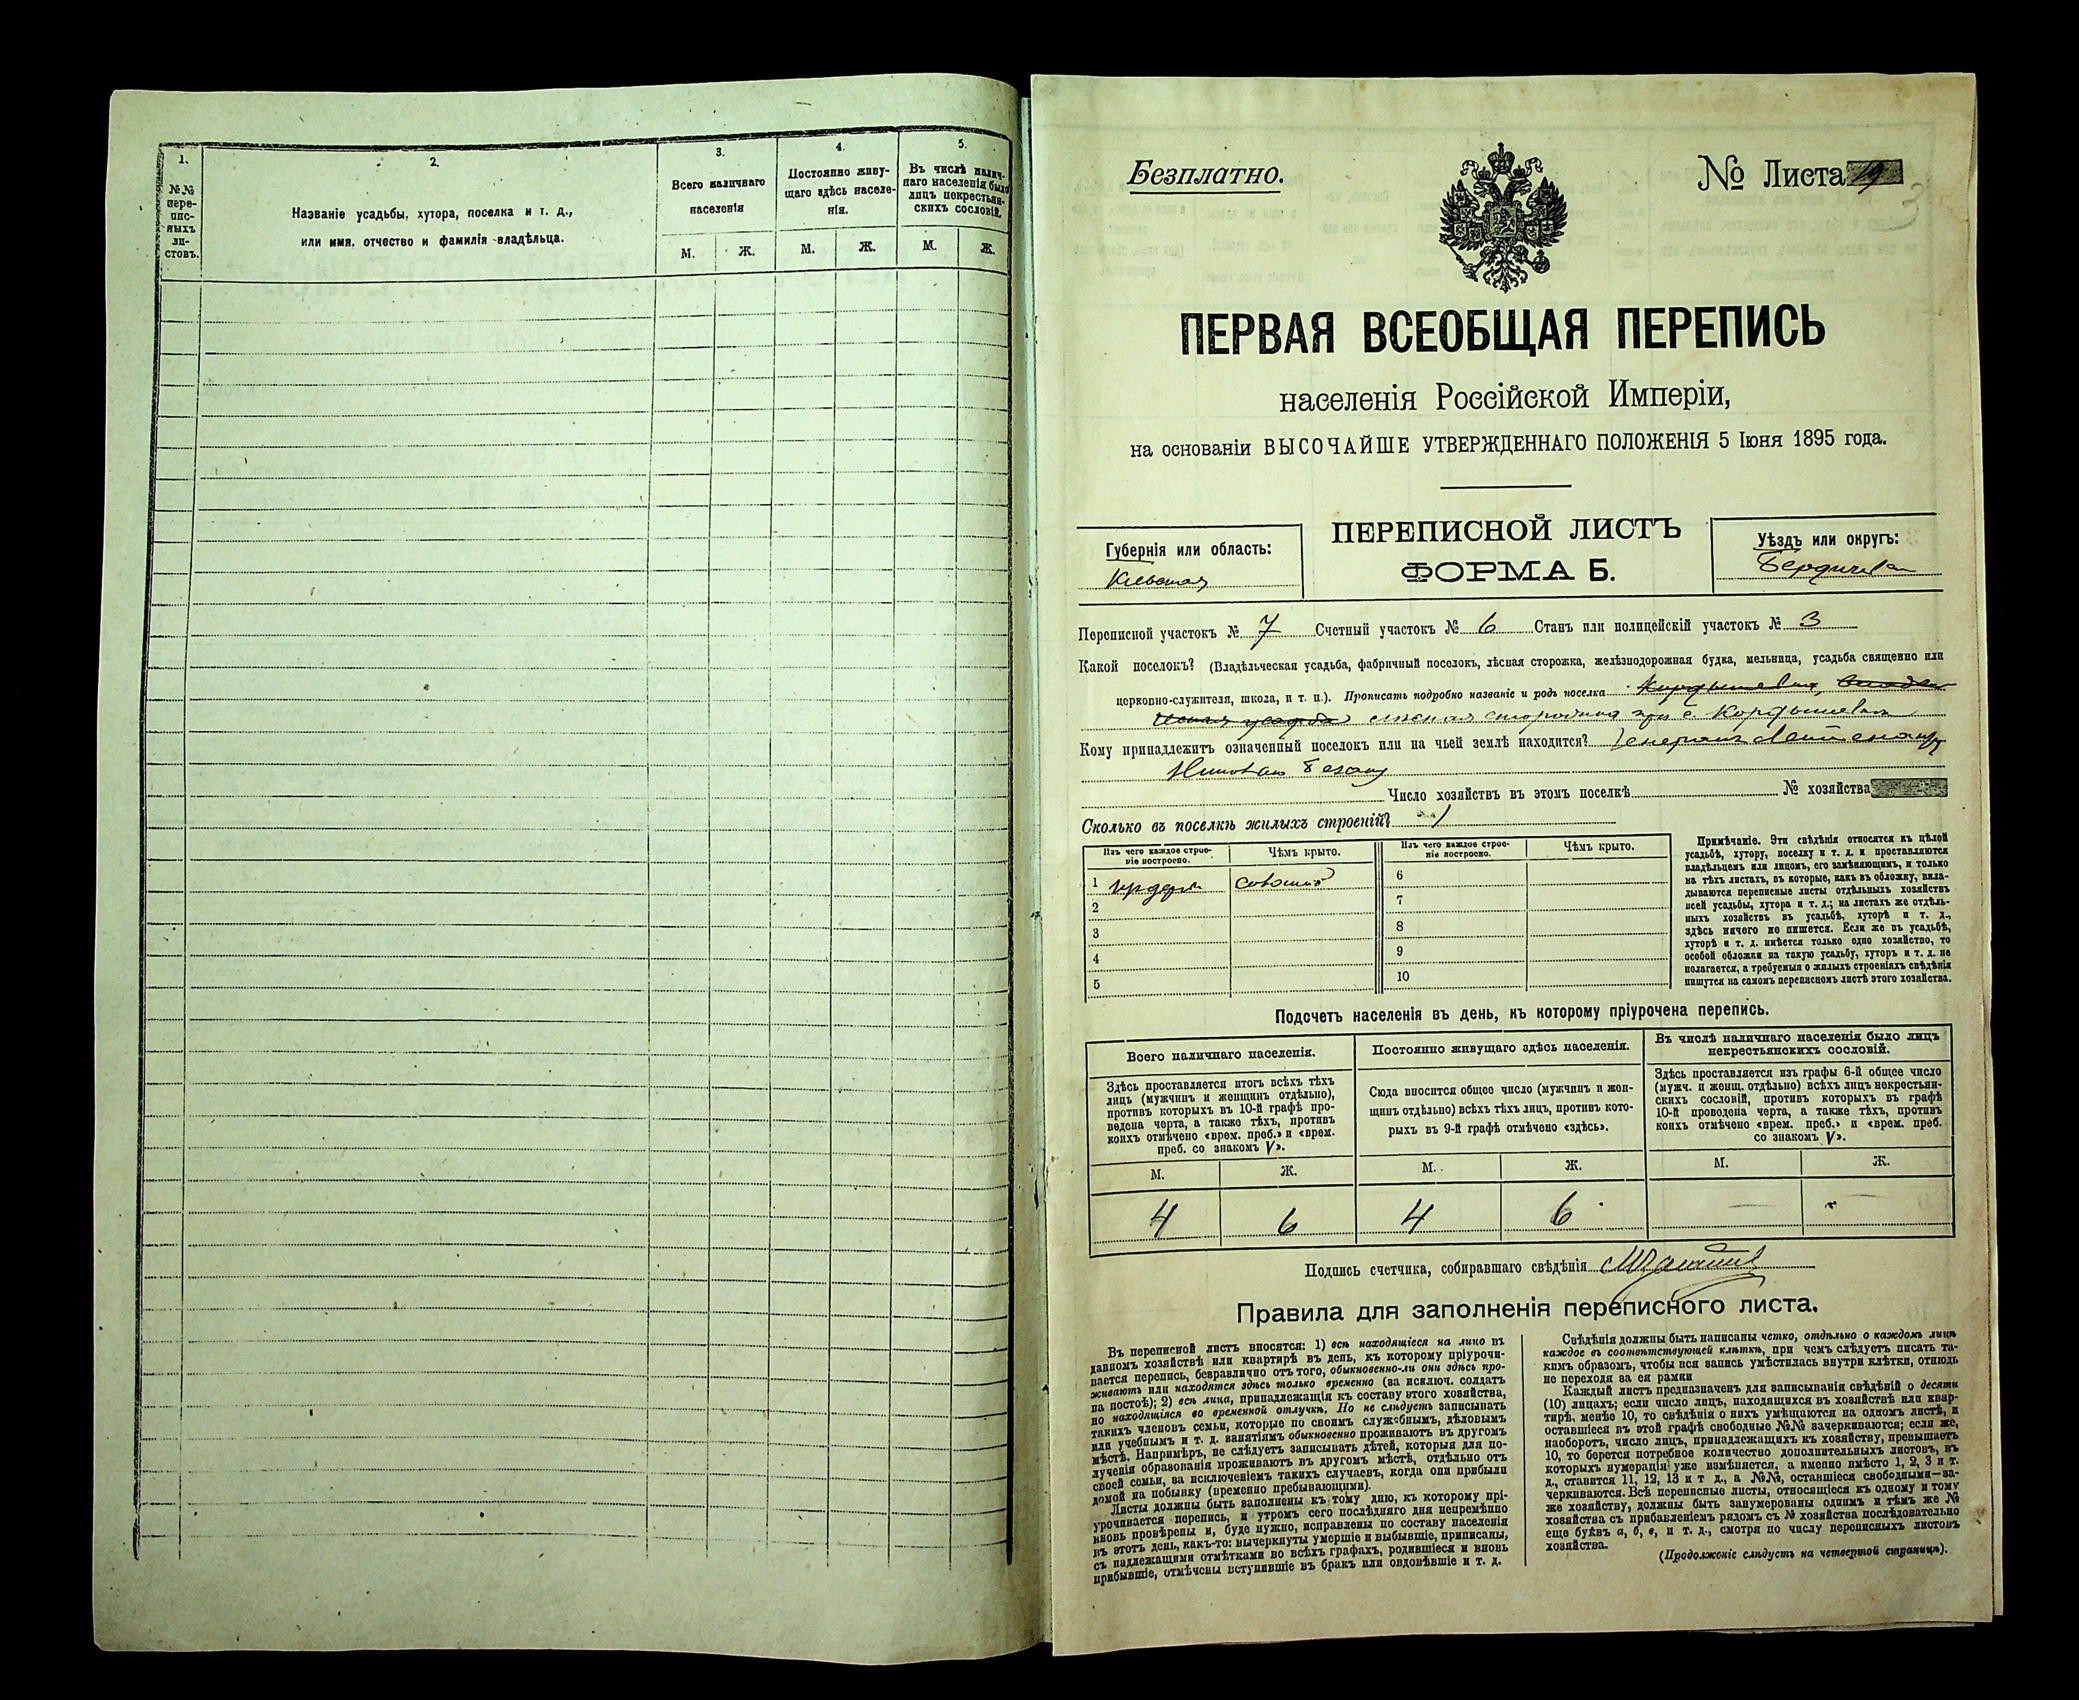 1.
2.
3.
4.
5.
№№ пере-
пис-
ныхъ
ли-
стовъ.
Названіе усадьбы, хутора, поселка и т. д.,
или имя, отчество и фамилія владѣльца.
Всего наличнаго
населенія
Постоянно живу-
щаго здѣсь населе-
нія.
Въ числѣ налич-
наго населенія было
лицъ некрестьян-
скихъ сословій.
М. Ж. М. Ж. М. Ж.
Безплатно.
№ Листа 19
ПЕРВАЯ ВСЕОБЩАЯ ПЕРЕПИСЬ
населенія Россійской Имперіи,
на основаніи ВЫСОЧАЙШЕ УТВЕРЖДЕННАГО ПОЛОЖЕНІЯ 5 Іюня 1895 года.
Губернія или область:
Кіевская
ПЕРЕПИСНОЙ ЛИСТЪ
ФОРМА Б.
Уѣздъ или округъ:
Бердичев
Переписной участокъ № 7 Счетный участокъ № 6 Станъ или полицейскій участокъ № 3
Какой поселокъ? (Владѣльческая усадьба, фабричный поселокъ, лѣсная сторожка, желѣзнодорожная будка, мельница, усадьба священно или
церковно-служителя, школа, и т. п.). Прописать подробно названіе и родъ поселка
усадьба при с. Кордышевка
Кому принадлежитъ означенный поселокъ или на чьей землѣ находится? Генералъ Лейтенанту
Число хозяйствъ въ этомъ поселкѣ № хозяйства
Сколько въ поселкѣ жилыхъ строеній? 1
Изъ чего каждое строе-
ніе построено.
Чѣмъ крыто.
Изъ чего каждое строе-
ніе построено.
Чѣмъ крыто.
1 соломой 6
2 7
3 8
4 9
5 10
Примѣчаніе. Эти свѣдѣнія относятся къ цѣлой
усадьбѣ, хутору, поселку и т. д. и проставляются
владѣльцемъ или лицомъ, его замѣняющимъ, и только
на тѣхъ листахъ, въ которые, какъ въ обложку, вкла-
дываются переписные листы отдѣльныхъ хозяйствъ
всей усадьбы, хутора и т. д.; на листахъ же отдѣль-
ныхъ хозяйствъ въ усадьбѣ, хуторѣ и т. д.,
здѣсь ничего не пишется. Если же въ усадьбѣ,
хуторѣ и т. д. имѣется только одно хозяйство, то
особой обложки на такую усадьбу, хуторъ и т. д. не
полагается, а требуемыя о жилыхъ строеніяхъ свѣдѣнія
пишутся на самомъ переписномъ листѣ этого хозяйства.
Подсчетъ населенія въ день, къ которому пріурочена перепись.
Всего наличнаго населенія.
Здѣсь проставляется итогъ всѣхъ тѣхъ
лицъ (мужчинъ и женщинъ отдѣльно),
противъ которыхъ въ 10-й графѣ про-
ведена черта, а также тѣхъ, противъ
коихъ отмѣчено «врем. преб.» и «врем.
преб. со знакомъ V».
Постоянно живущаго здѣсь населенія.
Сюда вносится общее число (мужчинъ и жен-
щинъ отдѣльно) всѣхъ тѣхъ лицъ, противъ кото-
рыхъ въ 9-й графѣ отмѣчено «здѣсь».
Въ числѣ наличнаго населенія было лицъ
некрестьянскихъ сословій.
Здѣсь проставляется изъ графы 6-й общее число
(мужч. и женщ. отдѣльно) всѣхъ лицъ некрестьян-
скихъ сословій, противъ которыхъ въ графѣ
10-й проведена черта, а также тѣхъ, противъ
коихъ отмѣчено «врем. преб.» и «врем. преб.
со знакомъ V».
М. Ж. М. Ж. М. Ж.
4 6 4 6 — —
Подпись счетчика, собиравшаго свѣдѣнія
Правила для заполненія переписного листа.
Въ переписной листъ вносятся: 1) всѣ находящіеся на лицо въ
данномъ хозяйствѣ или квартирѣ въ день, къ которому пріурочи-
вается перепись, безразлично отъ того, обыкновенно-ли они здѣсь про-
живаютъ или находятся здѣсь только временно (за исключ. солдатъ
на постоѣ); 2) всѣ лица, принадлежащія къ составу этого хозяйства,
но находящіяся во временной отлучкѣ. Но не слѣдуетъ записывать
такихъ членовъ семьи, которые по своимъ служебнымъ, дѣловымъ
или учебнымъ и т. д. занятіямъ обыкновенно проживаютъ въ другомъ
мѣстѣ. Напримѣръ, не слѣдуетъ записывать дѣтей, которыя для по-
лученія образованія проживаютъ въ другомъ мѣстѣ, отдѣльно отъ
своей семьи, за исключеніемъ такихъ случаевъ, когда они прибыли
домой на побывку (временно пребывающими).
Листы должны быть заполнены къ тому дню, къ которому прі-
урочивается перепись, и утромъ сего послѣдняго дня непремѣнно
вновь провѣрены и, буде нужно, исправлены по составу населенія
въ этотъ день, какъ-то: вычеркнуты умершіе и выбывшіе, приписаны,
съ надлежащими отмѣтками во всѣхъ графахъ, родившіеся и вновь
прибывшіе, отмѣчены вступившіе въ бракъ или овдовѣвшіе и т. д.
Свѣдѣнія должны быть написаны четко, отдѣльно о каждомъ лицѣ
каждое въ соотвѣтствующей клѣткѣ, при чемъ слѣдуетъ писать та-
кимъ образомъ, чтобы вся запись умѣстилась внутри клѣтки, отнюдь
не переходя за ея рамки
Каждый листъ предназначенъ для записыванія свѣдѣній о десяти
(10) лицахъ; если число лицъ, находящихся въ хозяйствѣ или квар-
тирѣ, менѣе 10, то свѣдѣнія о нихъ умѣщаются на одномъ листѣ, и
оставшіеся въ этой графѣ свободные №№ зачеркиваются; если же,
наоборотъ, число лицъ, принадлежащихъ къ хозяйству, превышаетъ
10, то берется потребное количество дополнительныхъ листовъ, въ
которыхъ нумерація уже измѣняется, а именно вмѣсто 1, 2, 3 и т.
д., ставится 11, 12, 13 и т д., а №№, оставшіеся свободными—за-
черкиваются. Всѣ переписные листы, относящіеся къ одному и тому
же хозяйству, должны быть занумерованы однимъ и тѣмъ же №
хозяйства съ прибавленіемъ рядомъ съ № хозяйства послѣдовательно
еще буквъ а, б, в, и т. д., смотря по числу переписныхъ листовъ
хозяйства.
(Продолженіе слѣдуетъ на четвертой страницѣ).